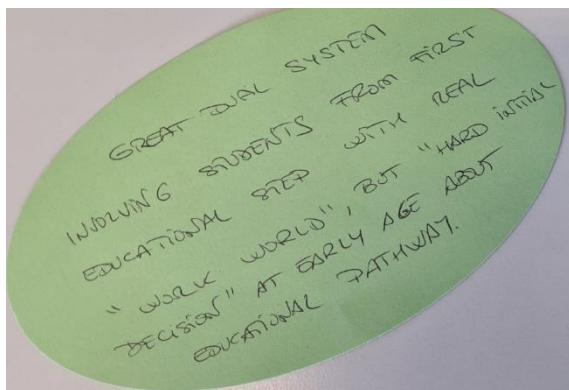 GREAT DUAL SYSTEM
INVOLVING STUDENTS FROM FIRST
EDUCATIONAL STEP WITH REAL
"WORK WORLD", BUT "HARD INITIAL
DECISION" AT EARLY AGE ABOUT
EDUCATIONAL PATHWAY.